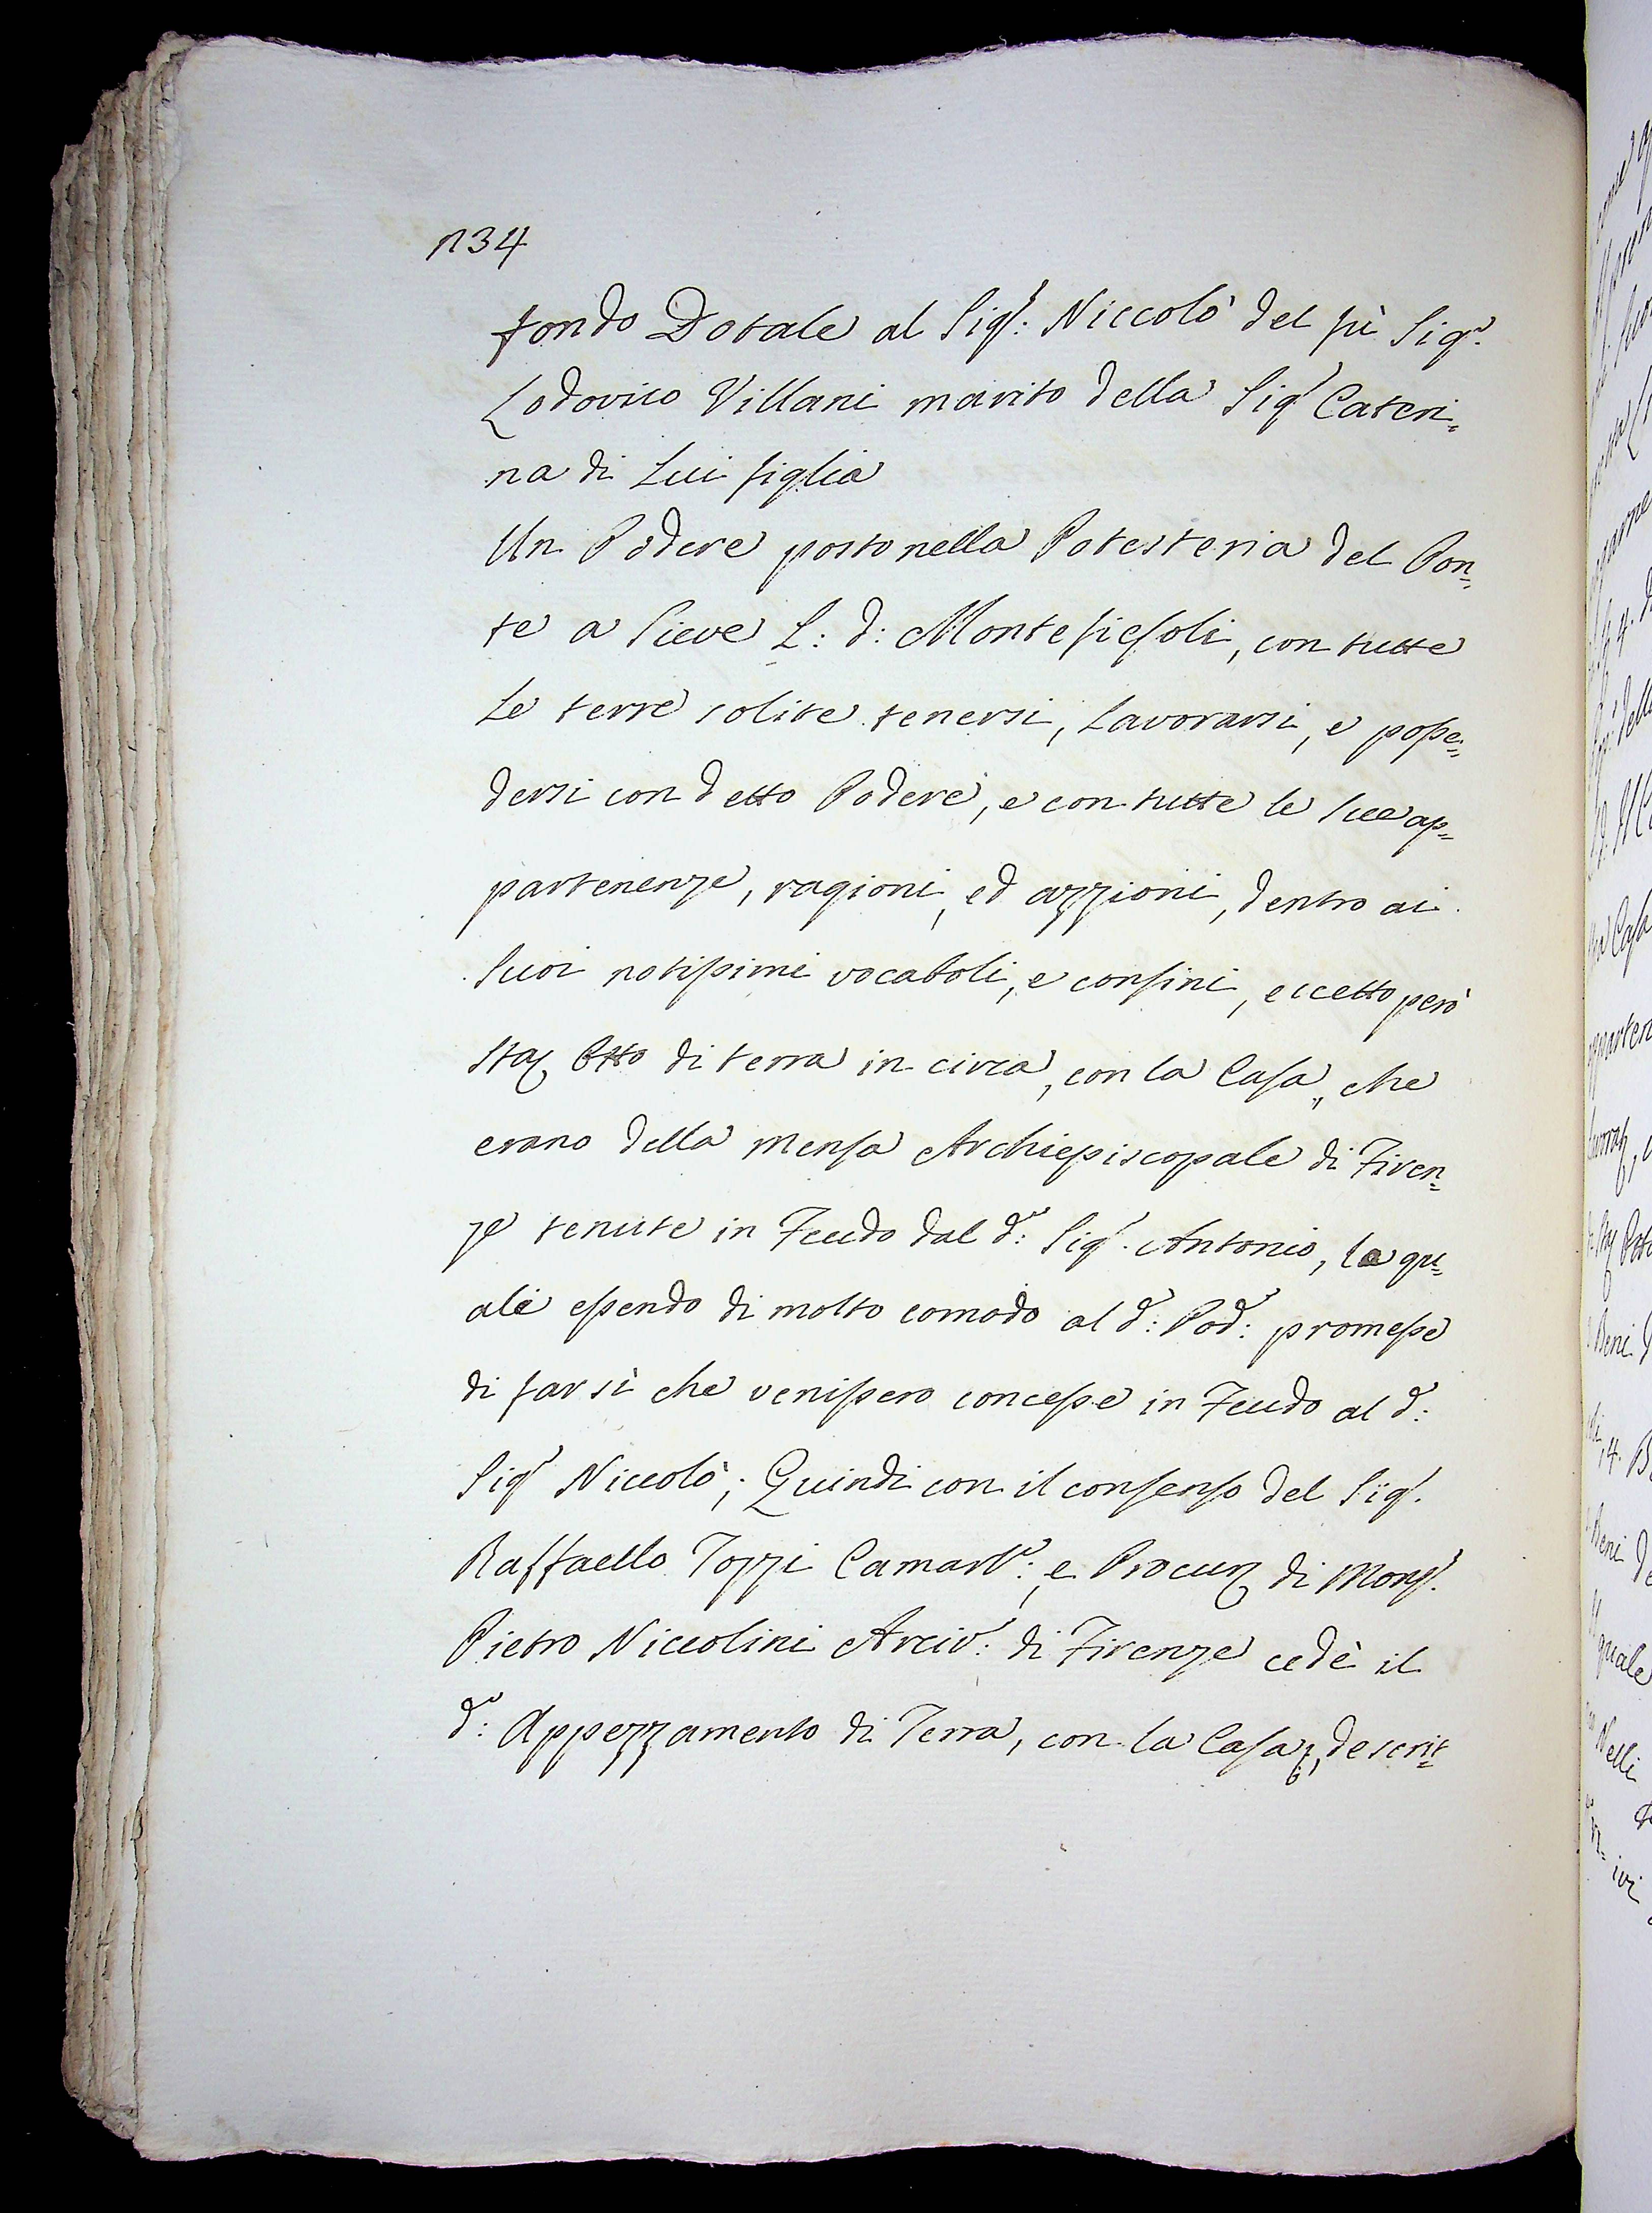 n34
fondo Dotale al Sigr: Niccolò del fù Sigr.
Lodovico Villani marito della Sigr Cateri=
na di Lui figlia
Un Podere posto nella Potesteria del Pon=
te a Sieve L: d: Montefiesoli, con tutte
Le terre solite tenersi, Lavorarsi, e posse=
dersi con detto Podere, e con tutte le sue ap=
partenenze, ragioni, ed azzioni, dentro ai
suoi notissimi vocaboli, e confini, eccetto però
Sta Otto di terra in circa, con la Casa, che
erano della Mensa Archiepiscopale di Firen=
ze tenute in Feudo dal do: Sigr. Antonio, le qu=
ali essendo di molto comodo al do: Pode: promesse
di far sì che venissero concesse in Feudo al do:
Sigr Niccolò; Quindi con il consenso del Sigr.
Raffaello Tozzi Camarlo: e Procur di Monsr.
Pietro Niccolini Arcivo: di Firenze cedè il
do: Appezzamento di Terra, con la Casa, descrit=